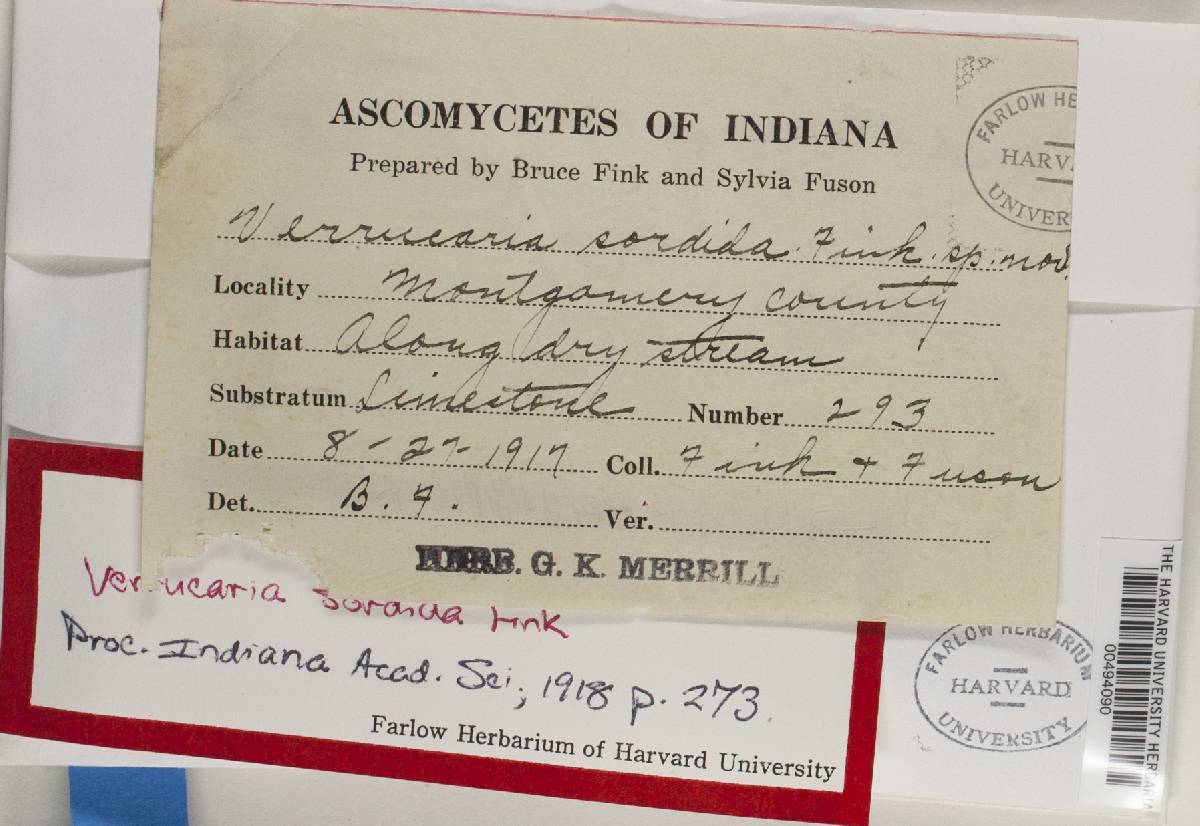 ASCOMYCETES OF INDIANA
Prepared by Bruce Fink and Sylvia Fuson
Verrucaria sordida Fink. sp. nov.
Locality Montgomery county
Habitat Along dry stream
Substratum Limestone Number 293
Date 8-27-1917 Coll. Fink & Fuson
Det. B. F. Ver.
HERB. G. K. MERRILL
FARLOW HE
HARVA
UNIVER
Verrucaria sordida Fink
Proc. Indiana Acad. Sci, 1918 p. 273.
Farlow Herbarium of Harvard University
FARLOW HERBARIUM
HARVARD
UNIVERSITY
THE HARVARD UNIVERSITY HERBARIA
00494090